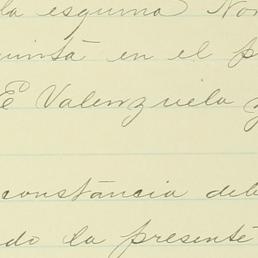 la esquina Nor
quinta en el p
E Valenzuela y
constancia deb
do la presente